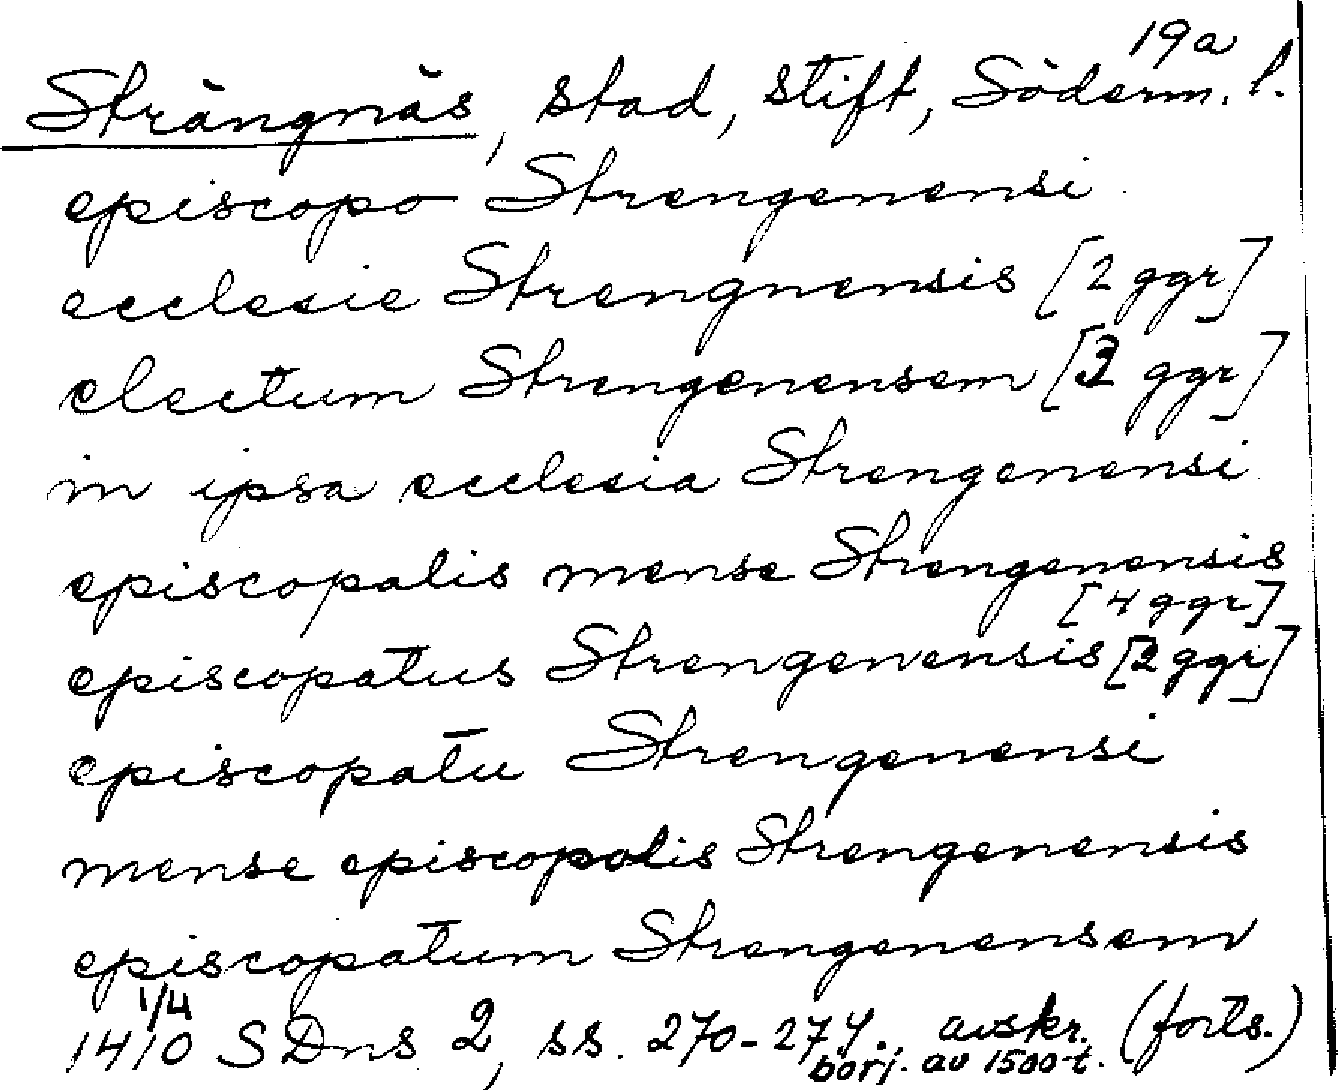 19a
Strängnäs, stad, stift, Söderm. l.
episcopo Strengenensi
ecclesie Strengnensis [2 ggr]
electum Strengenensem [3 ggr]
in ipsa ecclesia Strengenensi
episcopalis mense Strengenensis
[4 ggr]
episcopatus Strengenensis [2 ggr]
episcopatu Strengenensi
mense episcopalis Strengenensis
episcopatum Strengenensem
1/4
1410 SDns 2, ss. 270-274. avskr. (forts.)
börj. av 1500-t.